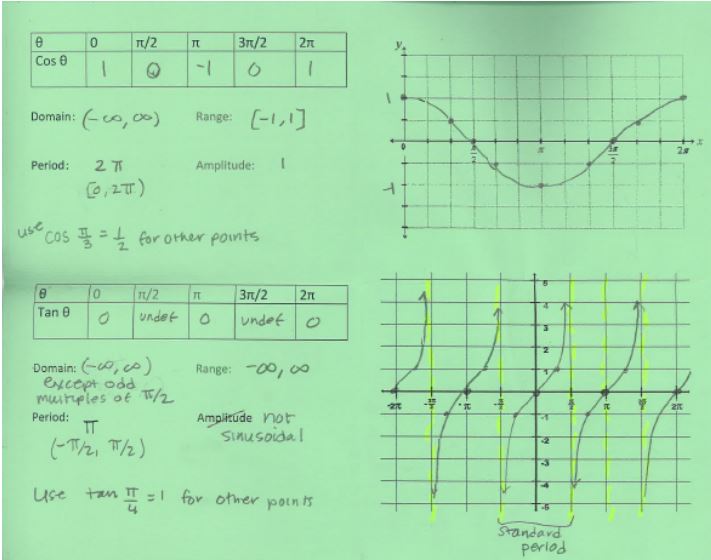 θ 0 π/2 π 3π/2 2π
Cos θ 1 0 -1 0 1
Domain: (-∞, ∞) Range: [-1,1]
Period: 2π Amplitude: 1
[0, 2π)
use cos π/3 = 1/2 for other points
y
1
0 π/2 π 3π/2 2π x
-1
θ 0 π/2 π 3π/2 2π
Tan θ 0 undef 0 undef 0
Domain: (-∞, ∞) Range: -∞, ∞
except odd
multiples of π/2
Period: π Amplitude not
(-π/2, π/2) sinusoidal
Use tan π/4 = 1 for other points
5
4
3
2
1
-2π -π π/2 π 2π
-1
-2
-3
-4
-5
Standard
period